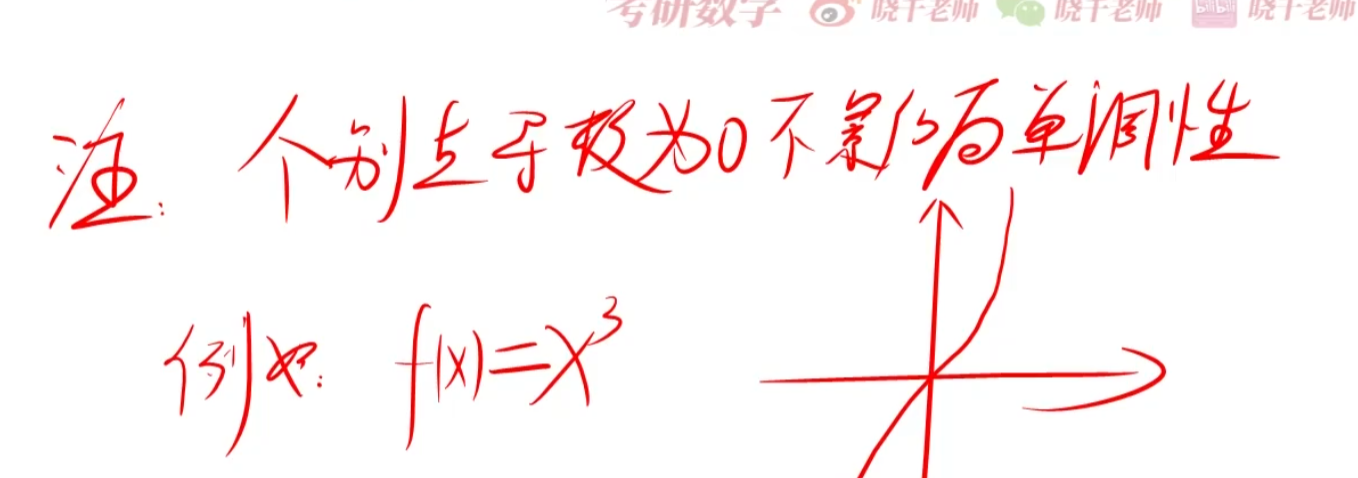 考研数学 晓千老师 晓千老师 bilibili 晓千老师
注: 个别点导数为0不影响单调性
例如: f(x)=x³